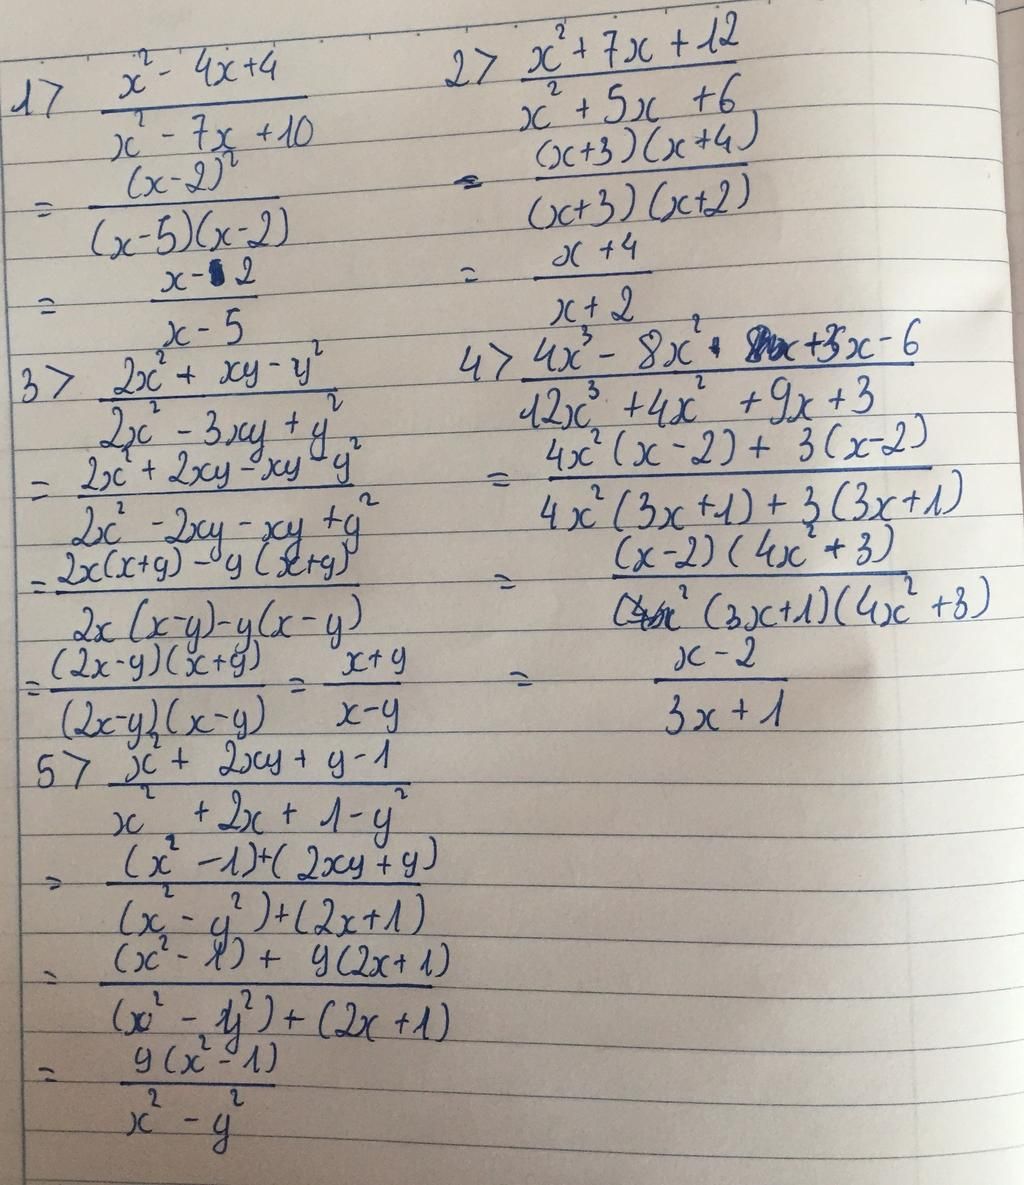 1> x² - 4x+4
x² - 7x + 10
= (x-2)²
(x-5)(x-2)
= x - 2
x - 5
2> x² + 7x + 12
x² + 5x + 6
= (x+3)(x+4)
(x+3)(x+2)
= x + 4
x + 2
3> 2x² + xy - y²
2x² - 3xy + y²
= 2x² + 2xy - xy - y²
2x² - 2xy - xy + y²
= 2x(x+y) - y(x+y)
2x(x-y) - y(x-y)
= (2x-y)(x+y) = x+y
(2x-y)(x-y) x-y
4> 4x³ - 8x² + 3x - 6
12x³ + 4x² + 9x + 3
= 4x²(x-2) + 3(x-2)
4x²(3x+1) + 3(3x+1)
= (x-2)(4x²+3)
(3x+1)(4x²+3)
= x - 2
3x + 1
5> x² + 2xy + y - 1
x² + 2x + 1 - y²
= (x² - 1)+(2xy + y)
(x² - y²)+(2x+1)
= (x² - 1) + y(2x+1)
(x² - y²) + (2x + 1)
= y(x² - 1)
x² - y²